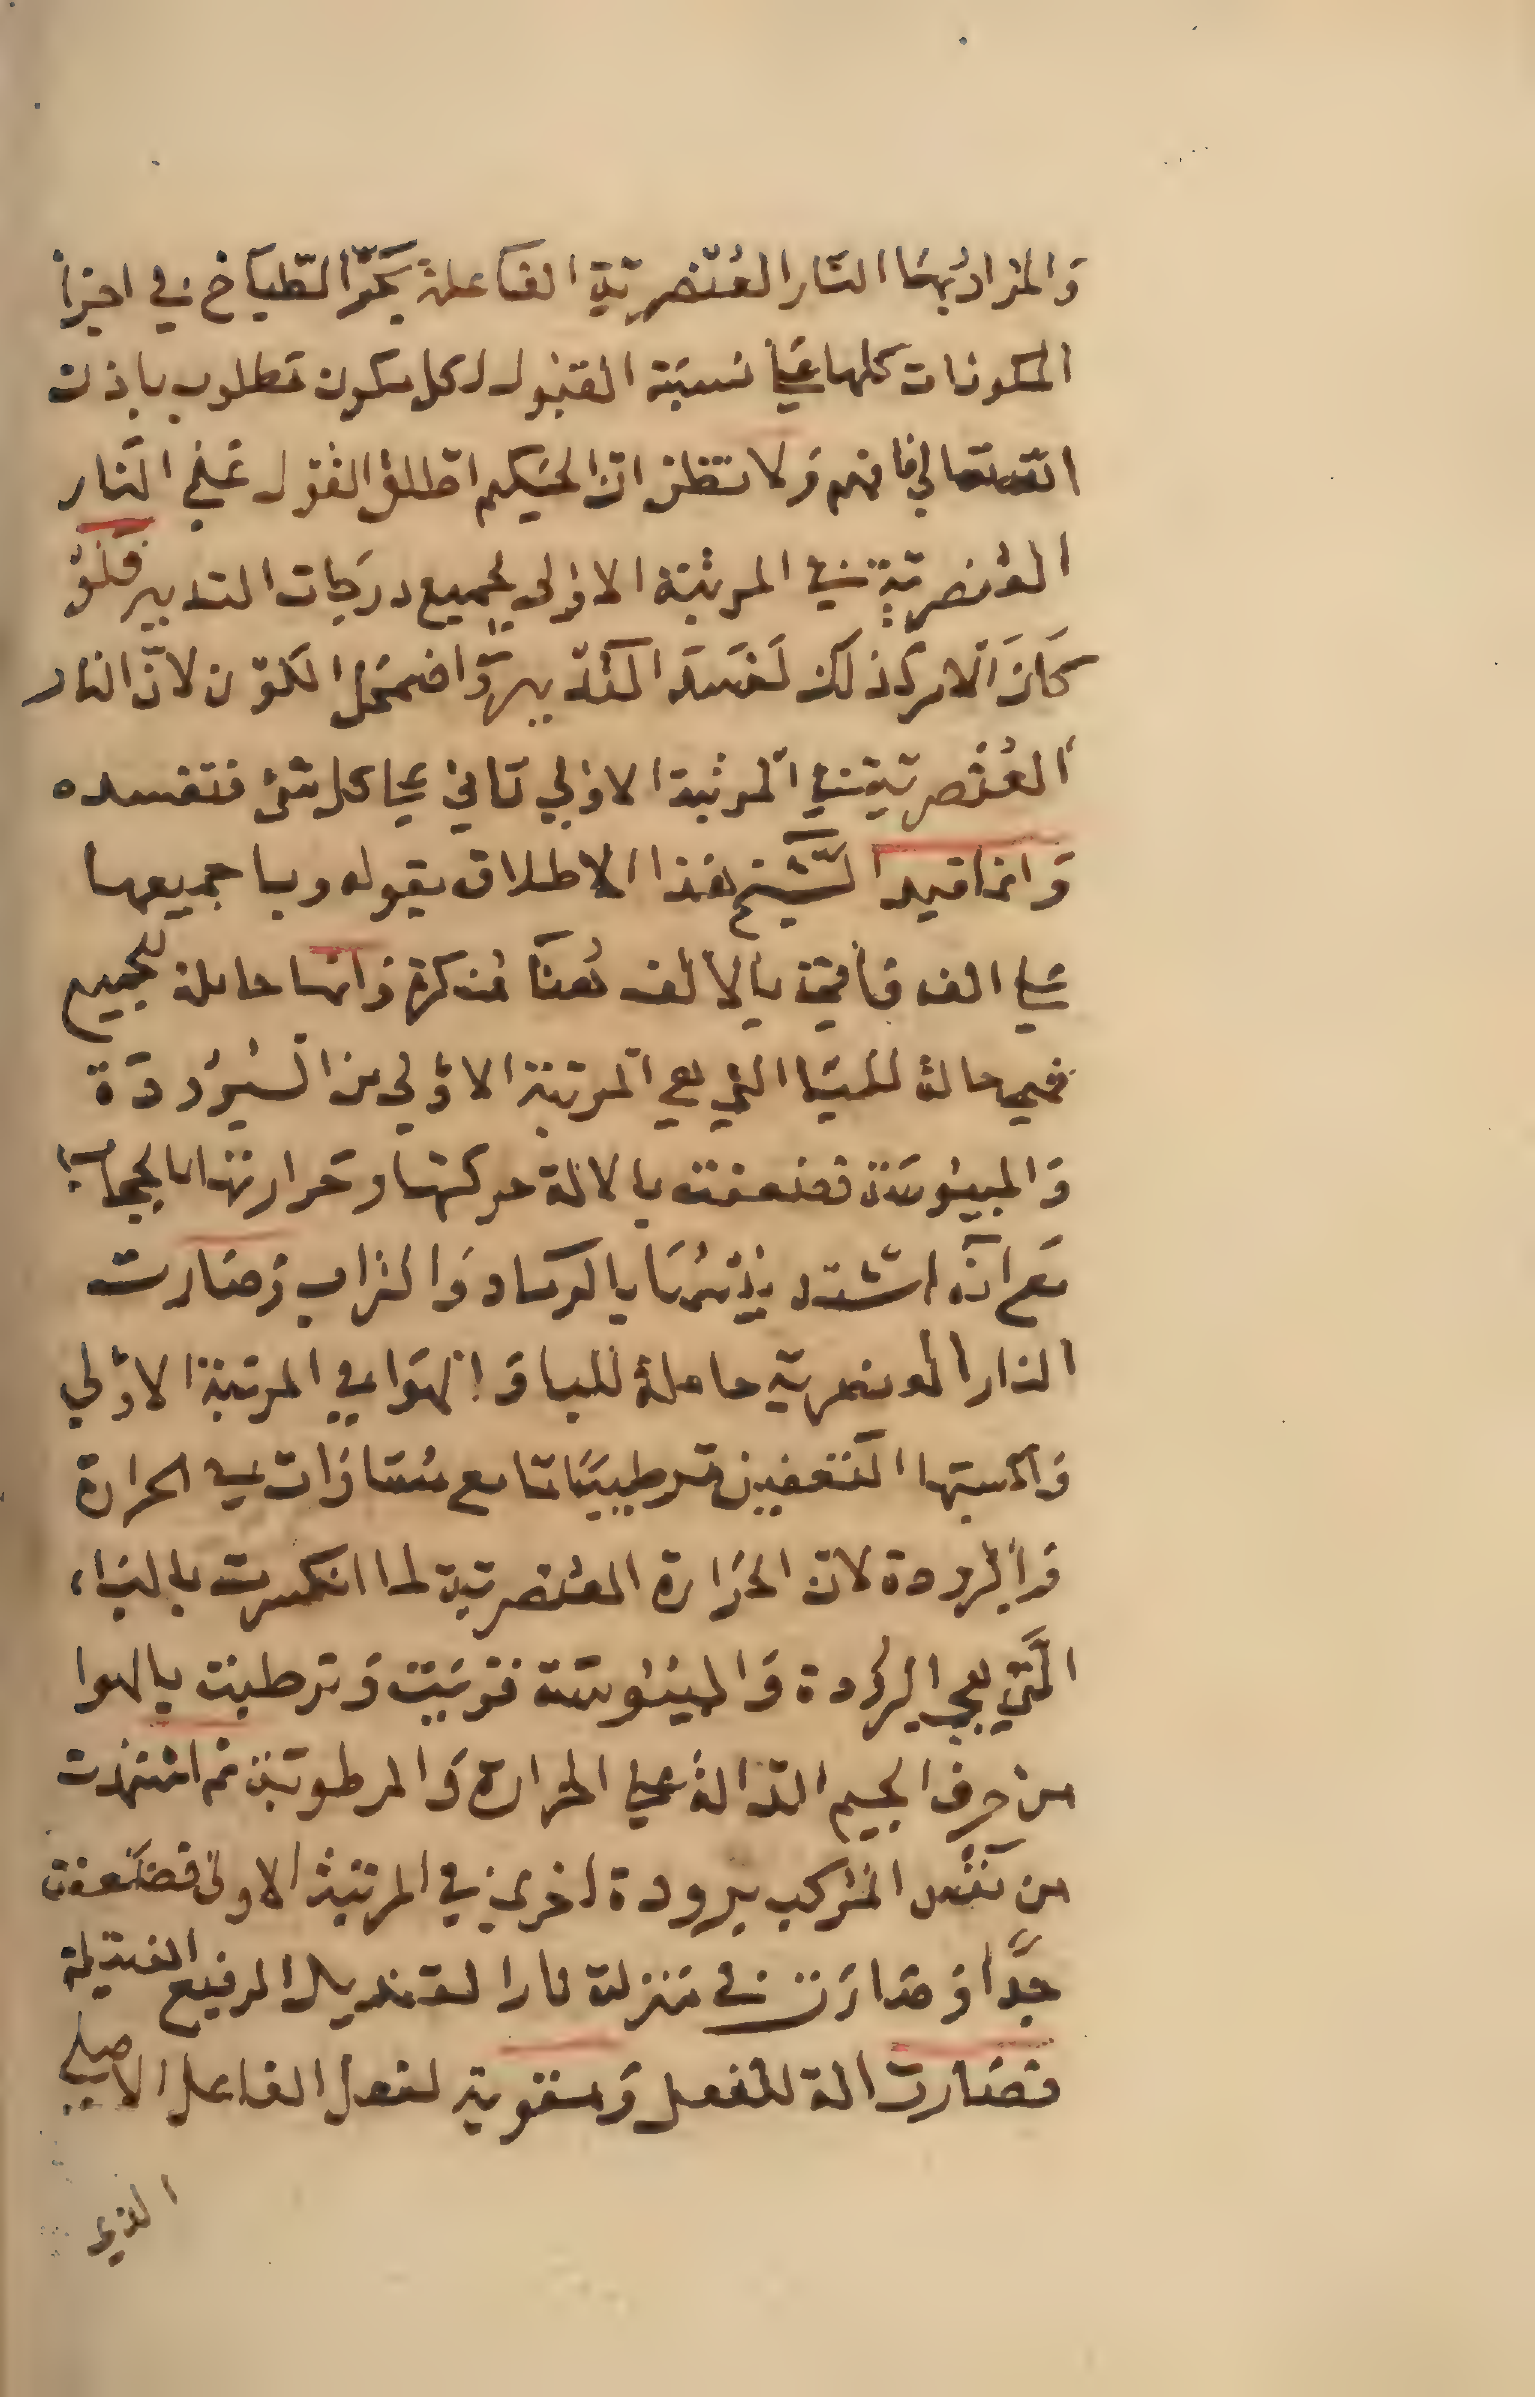 والمراد بها النار العنصرية الفاعلة بحر الطباخ في اجزأ
المكونات كلها علي نسبة القبول لكل مكون مطلوب باذن
الله تعالي فافهم ولا تظن ان الحكيم اطلق القول علي النار
العنصرية في المرتبة الاولي لجميع درجات التدبير فلو
كان الامر كذلك لفسد التدبير واضمحل الكون لان النار
العنصرية في المرتبة الاولي تاتي علي كل شي فتفسده
وانما قيد الشيخ هذا الاطلاق بقوله وبا جميعها
علي الف فاقمت بالالف هنا مذكرة ذاتها حاملة للجميع
فهي حالة للبا التي هي المرتبة الاولي من البرودة
واليبوسة فضعفت بالالة حركتها وحرارتها بالجملة
مع انه اشتد يبسها بالرماد والتراب وصارت
النار العنصرية حاملة للبا والهوا في المرتبة الاولي
واكسبها التعفين ترطيبا ما مع مساوات في الحرارة
والبرودة لان الحرارة العنصرية لما انكسرت بالباء
التي هي البرودة واليبوسة قويت وترطبت بالهوا
من حرف الجيم الدالة علي الحرارة والرطوبة ثم استمدت
من نفس المركب برودة اخري في المرتبة الاولي فضعفت
جدا وصارت في منزلة نار القنديل الرفيع الفتيلة
فصارت الة للفعل ومقوية لفعل الفاعل الاصلي
الذي